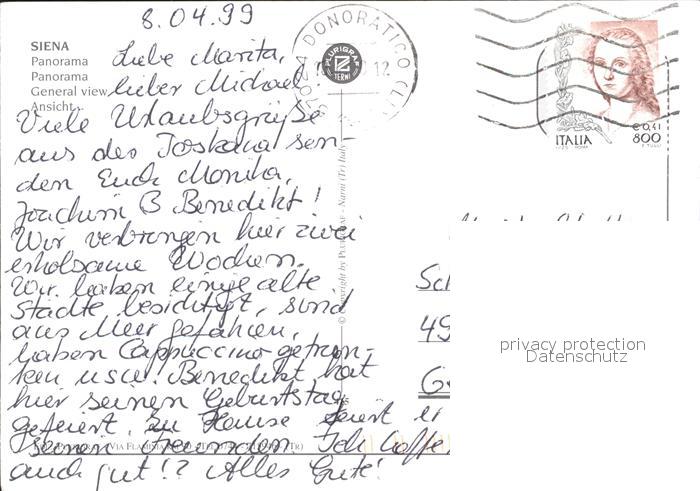 8.04.99
SIENA
Panorama
Panorama
General view
Ansicht
Liebe Marita,
lieber Michael
Viele Urlaubsgrüße
aus der Toskana sen-
den Euch Monika,
Joachim & Benedikt!
Wir verbringen hier zwei
erholsame Wochen.
Wir haben einige alte
Städte besichtigt, sind
ans Meer gefahren,
haben Cappuccino getrun-
ken usw. Benedikt hat
hier seinen Geburtstag
gefeiert, zu Hause feiert er
Freunden Ich hoffe
auch gut!? Alles Gute!
57024 DONORATICO (LI)
12
PLURIGRAF
TERNI
© Copyright by PLURIGRAF - Narni (Tr) Italy
€ 0,41
800
ITALIA
Sch
49
G
privacy protection
Datenschutz
VIA FLAMINIA